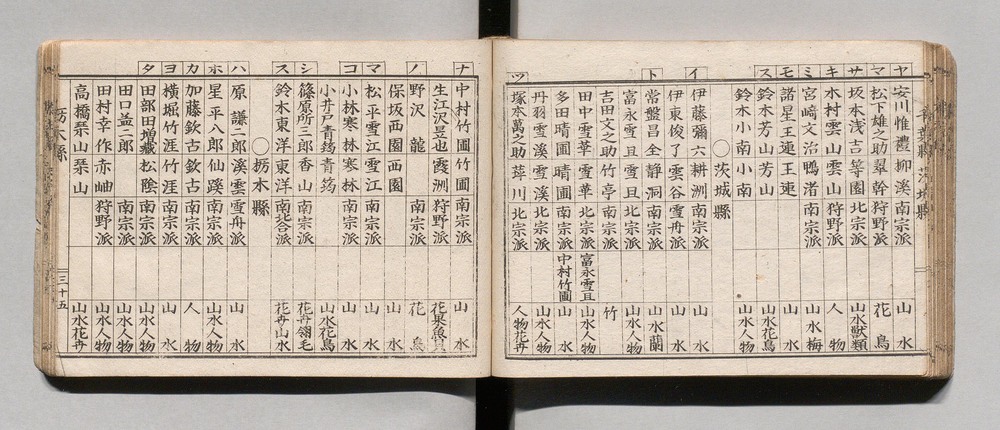 ヤ 安川惟禮 柳溪 南宗派 山水
マ 松下雄之助 翠幹 狩野派 花鳥
サ 坂本浅吉 等園 北宗派 山水獣類
キ 木村雲山 雲山 狩野派 人物
ミ 宮﨑文治 鴨渚 南宗派 山水梅
モ 諸星王連 王連 山水
ス 鈴木芳山 芳山 山水花鳥
鈴木小南 小南 山水人物
〇茨城縣
イ 伊藤彌六 耕洲 南宗派 山水
伊東俊了 雲谷 雪舟派 山水
ト 常盤昌全 静洞 南宗派 山水蘭
富永雪且 雪且 北宗派 山水人物
吉田艾之助 竹亭 南宗派 竹
田中雪華 雪華 南宗派 富永雪且 山水人物
多田晴圃 晴圃 南宗派 中村竹圃 山水
丹羽雪溪 雪溪 北宗派 山水人物
ツ 塚本萬之助 葦川 北宗派 人物花卉
ナ 中村竹圃 竹圃 南宗派 山水
生江沢昱也 霞洲 狩野派
ノ 野沢龍 南宗派 花鳥
保坂西園 西園 山水
マ 松平雪江 雪江 南宗派 山水
コ 小林寒林 寒林 南宗派 山水
小井戸青蒭 青蒭 山水花鳥
シ 篠原所三郎 香山 南宗派 花卉翎毛
ス 鈴木東洋 東洋 南北合派 花卉山水
〇栃木縣
ハ 原謙二郎 溪雲 雪舟派 山水
ホ 星平八郎 仙蹊 南宗派 山水人物
カ 加藤欽古 欽古 南宗派 人物
ヨ 横堀竹涯 竹涯 南宗派 山水
タ 田部田増藏 松陰 南宗派 山水人物
田口益二郎 南宗派 山水人物
田村幸作 赤岫 狩野派 山水人物
高橋栞山 栞山 山水花卉
栃木縣
三十五